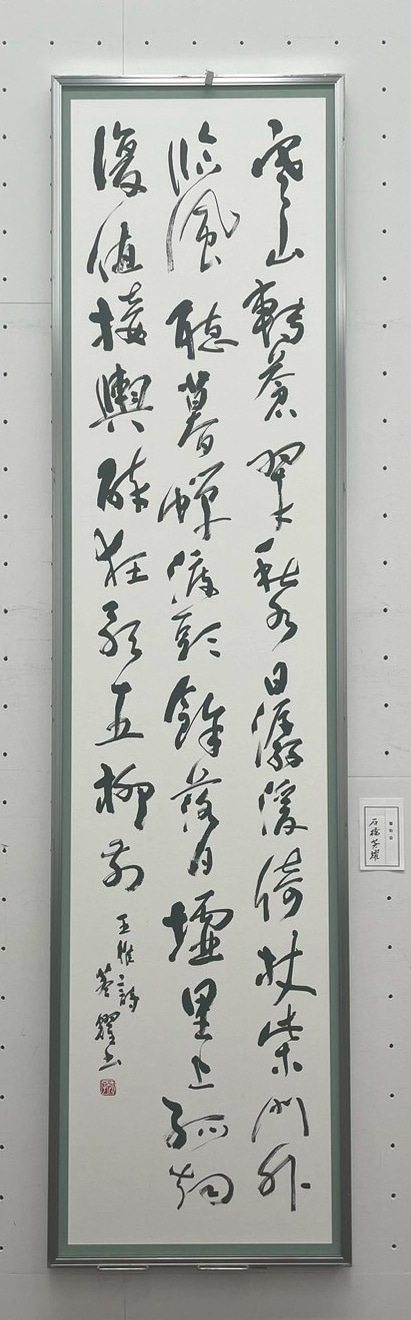 寒山轉蒼翠秋水日潺湲倚杖柴門外
臨風聴暮蟬渡頭餘落日墟里上孤烟
復值接輿醉狂歌五柳前
王維詩
石橋